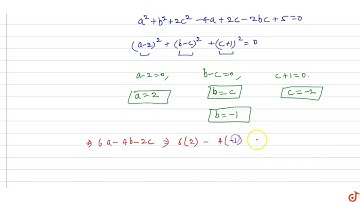 a² + b² + 2c² - 4a + 2c - 2bc + 5 = 0
(a-2)² + (b-c)² + (c+1)² = 0
a-2=0, b-c=0, c+1=0.
a=2 b=c c=-1
b=-1
⇒ 6a-4b-2c ⇒ 6(2) - 4(-1)
doubtnut